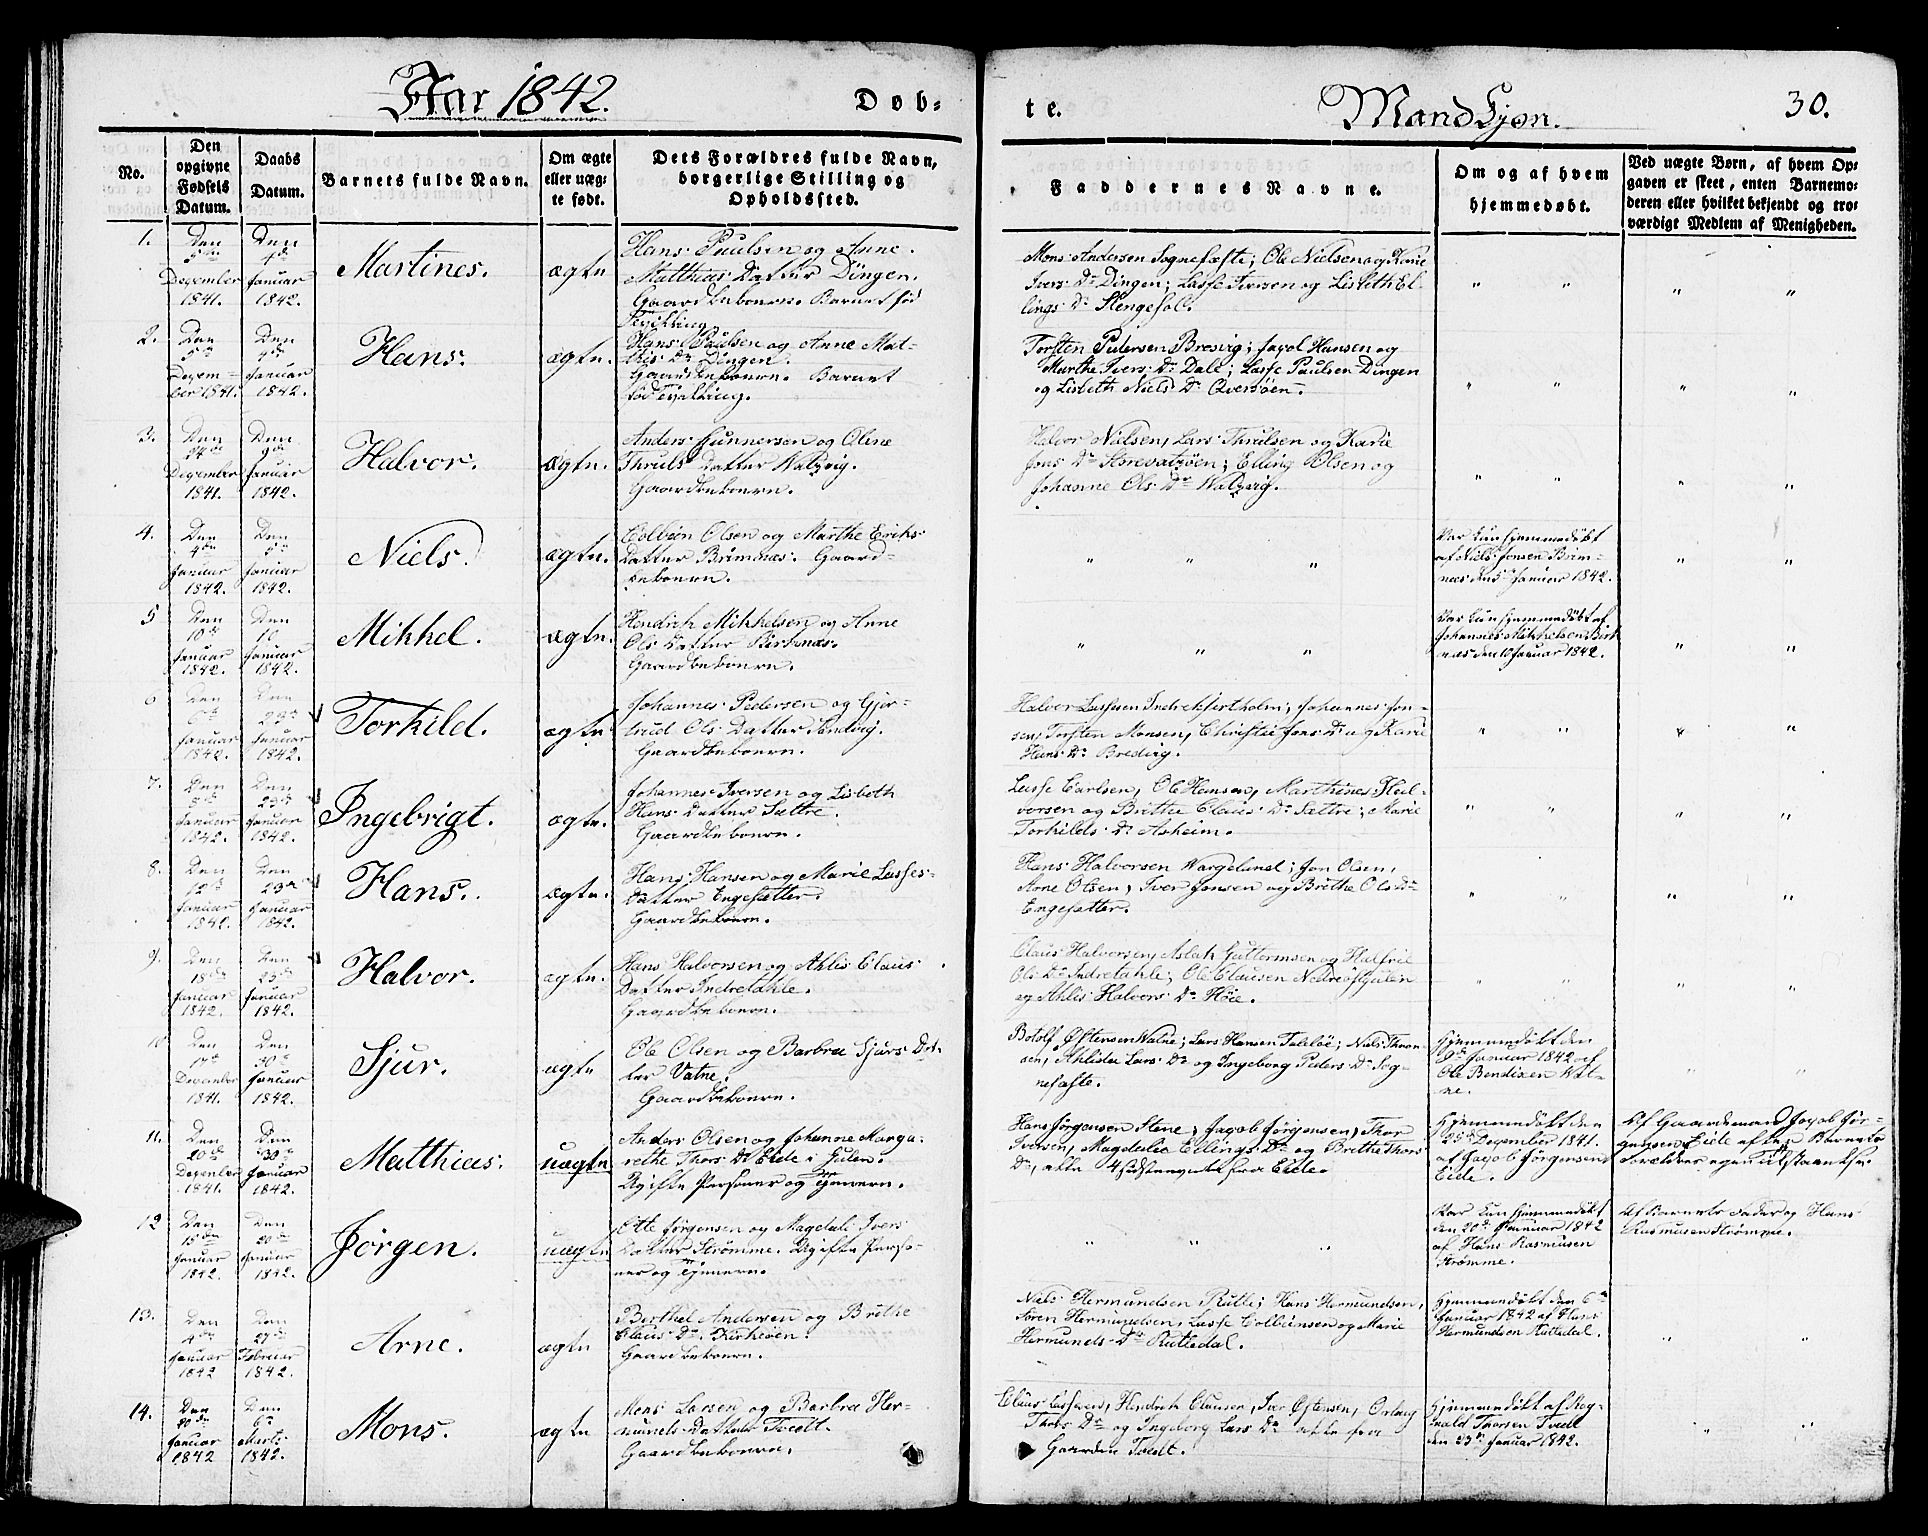 Aar 1842.
Døb-
te.
Mandkjøn.
30.
No.
Den opgivne Fødsels Datum.
Daabs Datum.
Barnets fulde Navn.
Om ægte eller uægte født.
Dets Forældres fulde Navn, borgerlige Stilling og Opholdssted.
Faddernes Navne.
Om og af hvem hjemmedøbt.
Ved uægte Børn, af hvem Opgaven er skeet, enten Barnemoderen eller hvilket bekjendt og troværdigt Medlem af Menigheden.
1.
Den 5te December 1841.
Den 4de Januar 1842.
Martines.
ægte
Hans Paulsen og Anne
Matthias Datter Dingen.
Gaardbeboere. Barnet fød
Tvilling
Mons Andersen Sognefæste; Ole Nielsen og Kari
Ivers Dr Dingen; Lasse Iversen og Lisbeth El-
lings Dr Slengesol.
2.
Den 5te December 1841.
Den 4de Januar 1842.
Hans.
ægte.
Hans Paulsen og Anne Mat-
this Dr Dingen.
Gaardbeboere. Barnet
fød Tvilling.
Torsten Pedersen Bresvig; Jacob Hansen og
Marthe Ivers Dr Dale; Lasse Paulsen Dingen
og Lisbeth Niels Dr Qversøen.
3.
Den 24de December 1841.
Den 9de Januar 1842.
Halvor.
ægte.
Anders Gunnersen og Oline
Thruls Datter Walsvig.
Gaardbeboere.
Halvor Nielsen, Lars Thrulsen og Karie
Jons Dr Storevatsøen; Elling Olsen og
Johanne Ols Dr Walsvig.
4.
Den 4de Januar 1842.
Den 5te Januar 1842.
Niels.
ægte.
Colbein Olsen og Marthe Eriks
Datter Brimnæs. Gaard-
beboere.
Var kun hjemmedøbt
af Niels Jonsen Brim-
næs den 5te Januar 1842.
5
Den 10de Januar 1842.
Den 10 Januar 1842.
Mikkel.
ægte.
Hendrik Mikkelsen og Anne
Ols Datter Birknæs.
Gaardbeboere.
Var kun hjemmedøbt af
Johannes Mikkelsen Birk
næs den 10 Januar 1842.
6
Den 6te Januar 1842.
Den 23de Januar 1842.
Torkild.
ægte
Johannes Pedersen og Gjer-
trud Ols Datter Sandvig.
Gaardbeboere.
Halvor Lassesen Indrefjortholm; Johannes Jon-
sen, Torsten Monsen, Christie Jons Dr og Karie
Hans Dr Bredvig.
7.
Den 8de Januar 1842.
Den 23de Januar 1842.
Ingebrigt.
ægte.
Johannes Iversen og Lisbeth
Hans Datter Sættre.
Gaardbeboere.
Lasse Carlsen, Ole Hansen, Marthines Hal-
vorsen og Brithe Claus Dr Sættre; Marie
Torkilds Dr Asheim.
8.
Den 12te Januar 1842.
Den 23de Januar 1842.
Hans.
ægte.
Hans Hansen og Marie Lasses-
Datter Engesætter.
Gaardbeboere.
Hans Halvorsen Wargelund; Jon Olsen,
Arne Olsen, Iver Jonsen og Brithe Ols Dr
Engesætter.
9.
Den 18de Januar 1842.
Den 23de Januar 1842.
Halvor.
ægte.
Hans Halvorsen og Ahlis Claus
Datter Indretahle.
Gaardbeboere.
Claus Halvorsen, Aslak Guttormsen og Halfrie
Ols Dr Indretahle; Ole Clausen Nedreøstgulen
og Ahlis Halvors Dr Høie.
10
Den 17de December 1841.
Den 30te Januar 1842.
Sjur.
ægte
Ole Olsen og Barbra Sjurs Dat-
ter Vatne.
Gaardbeboere.
Botolf Østensen Watne; Lars Hansen Takløe; Niels Thron-
sen, Ahlida Lars Dr og Ingeborg Peders Dr Sog-
nefæste.
Hjemmedøbt den
9de Januar 1842 af
Ole Bendixen Wat-
ne.
11.
Den 20de December 1841.
Den 30te Januar 1842.
Matthias.
uægte
Anders Olsen og Johanne Marga-
rethe Thors Dr Eide i Gulen.
Ugifte Personer og Tjenere.
Hans Jørgensen Stene, Jacob Jørgensen, Thor
Iversen, Magdela Ellings Dr og Brithe Thors
Dr, alle 4 sidstnævnte fra Eide.
Hjemmedøbt den
25de December 1841.
af Jacob Jørgensen
Eide.
Af Gaardemand Jacob Jør-
gensen Eide efter Barnets
Forældres egen Tilstaaelse.
12
Den 15de Januar 1842.
Den 20de Januar 1842.
Jørgen.
uægte
Otte Jørgensen og Magdeli Ivers
Datter Strømme. Ugifte Perso-
ner og Tjenere.
Var kun hjemmedøbt
den 20de Januar 1842
af Hans Rasmusen
Strømme.
Af Barnets Fader og Hans
Rasmusen Strømme.
13.
Den 4de Januar 1842
Den 27de Februar 1842.
Arne.
ægte
Berthel Andersen og Brithe
Claus Dr Kirkøen.
Gaardbeboere.
Niels Hermundsen Rutle; Hans Hermundsen,
Søren Hermundsen, Lasse Colbeinsen og Marie
Hermunds Dr Rutledal.
Hjemmedøbt den 6te
Januar 1842 af Hans
Hermundsen Rutledal.
14.
Den 20de Januar 1842
Den 6te Marts 1842.
Mons.
ægte
Mons Larsen og Barbra Her-
munds Datter Tvedt.
Gaardbeboere.
Claus Lassesen, Hendrik Clausen, Iver Østensen, Orlaug
Thors Dr og Ingeborg Lars Dr alle fra
Gaarden Tvedt.
Hjemmedøbt af Rog-
nald Thorsen Tvedt
den 23de Januar 1842.